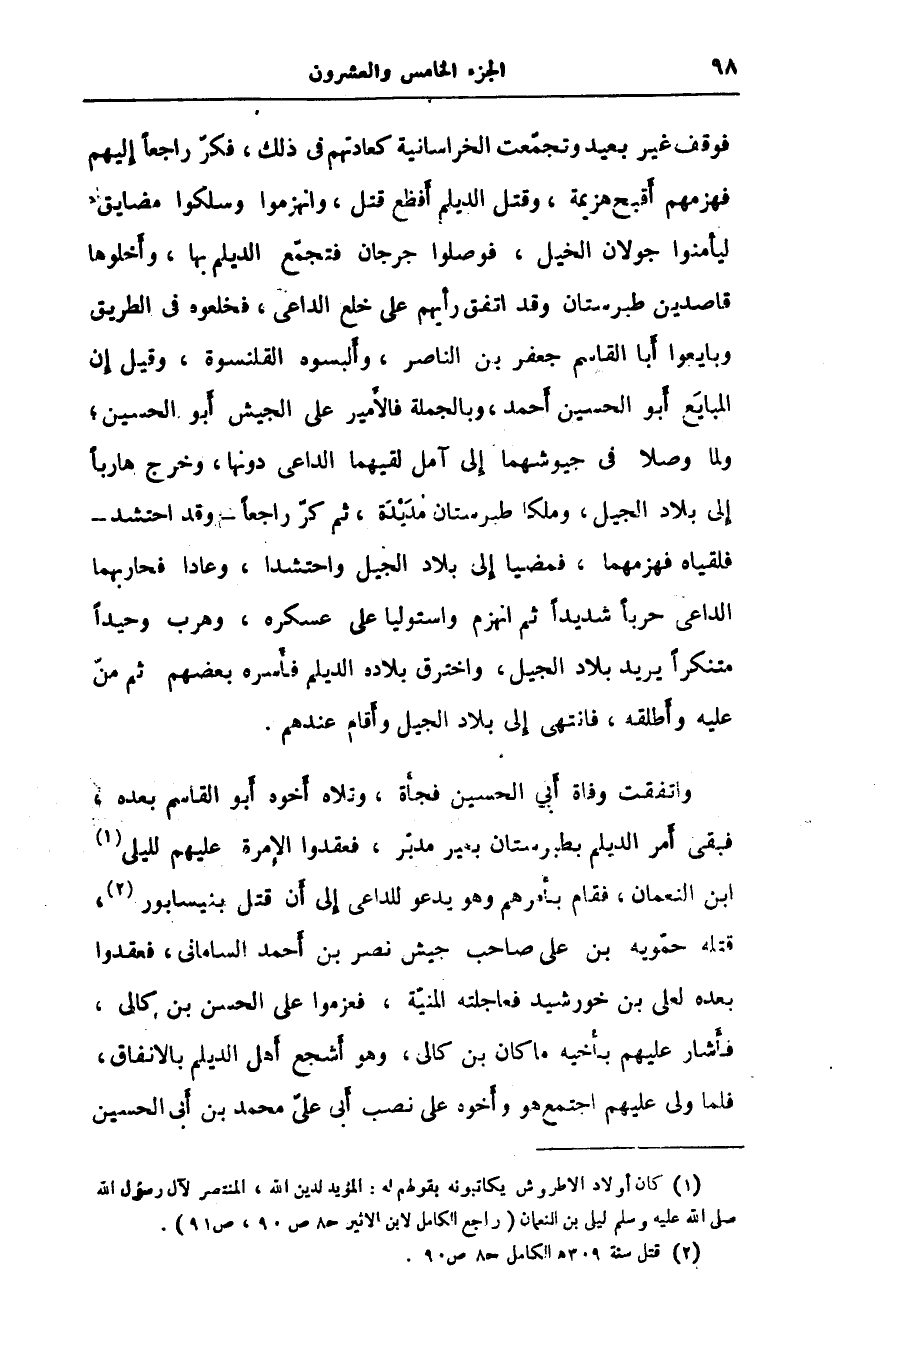 ٩٨
الجزء الخامس والعشرون
فوقف غير بعيد وتجمّعت الخراسانية كعادتهم فى ذلك ، فكرّ راجعاً إليهم
فهزمهم أقبح هزيمة ، وقتل الديلم أفظع قتل ، وانهزموا وسلكوا مضايق
ليأمنوا جولان الخيل ، فوصلوا جرجان فتجمّع الديلم بها ، وأخلوها
قاصدين طبرستان وقد اتفق رأيهم على خلع الداعى ، فخلعوه فى الطريق
وبايعوا أبا القاسم جعفر بن الناصر ، وألبسوه القلنسوة ، وقيل إن
المبايَع أبو الحسين أحمد ، وبالجملة فالأمير على الجيش أبو الحسين ؛
ولما وصلا فى جيوشهما إلى آمل لقيهما الداعى دونها ، وخرج هارباً
إلى بلاد الجيل ، وملكا طبرستان مُدَيْدَة ، ثم كرّ راجعاً – وقد احتشد –
فلقياه فهزمهما ، فمضيا إلى بلاد الجيل واحتشدا ، وعادا فحاربهما
الداعى حرباً شديداً ثم انهزم واستوليا على عسكره ، وهرب وحيداً
متنكراً يريد بلاد الجيل ، واخترق بلاده الديلم فأسره بعضهم ثم منّ
عليه وأطلقه ، فانتهى إلى بلاد الجيل وأقام عندهم .
واتفقت وفاة أبي الحسين فجأة ، وتلاه أخوه أبو القاسم بعده ،
فبقى أمر الديلم بطبرستان بغير مدبّر ، فعقدوا الإمرة عليهم لليلى (١)
ابن النعمان ، فقام بأمرهم وهو يدعو للداعى إلى أن قتل بنيسابور (٢) ،
قتله حمّويه بن على صاحب جيش نصر بن أحمد السامانى ، فعقدوا
بعده لعلى بن خورشيد فعاجلته المنيّة ، فعزموا على الحسن بن كالى ،
فأشار عليهم بأخيه ماكان بن كالى ، وهو أشجع أهل الديلم بالاتفاق ،
فلما ولى عليهم اجتمع هو وأخوه على نصب أبى علىّ محمد بن أبى الحسين
(١) كان أولاد الاطروش يكاتبونه بقولهم له : المؤيد لدين الله ، المنتصر لآل رسول الله
صلى الله عليه وسلم ليلى بن النعمان ( راجع الكامل لابن الاثير ح٨ ص ٩٠ ، ص ٩١ ) .
(٢) قتل سنة ٣٠٩هـ الكامل ح٨ ص٩٠ .